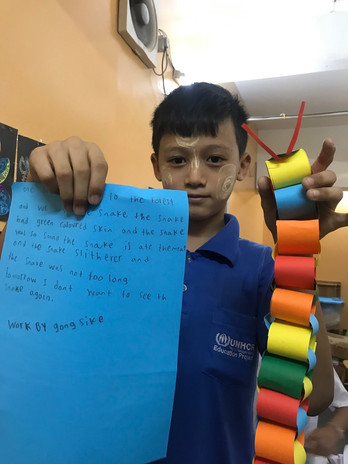 one to the forest
and we snake the snake
had green coloured skin and the snake
was so snake the snake is ate the meat
and the snake slitherer and
the snake was not too long.
tomorrow I dont want to see th
snake again.
work By gang sike
UNHCR
Education Pro